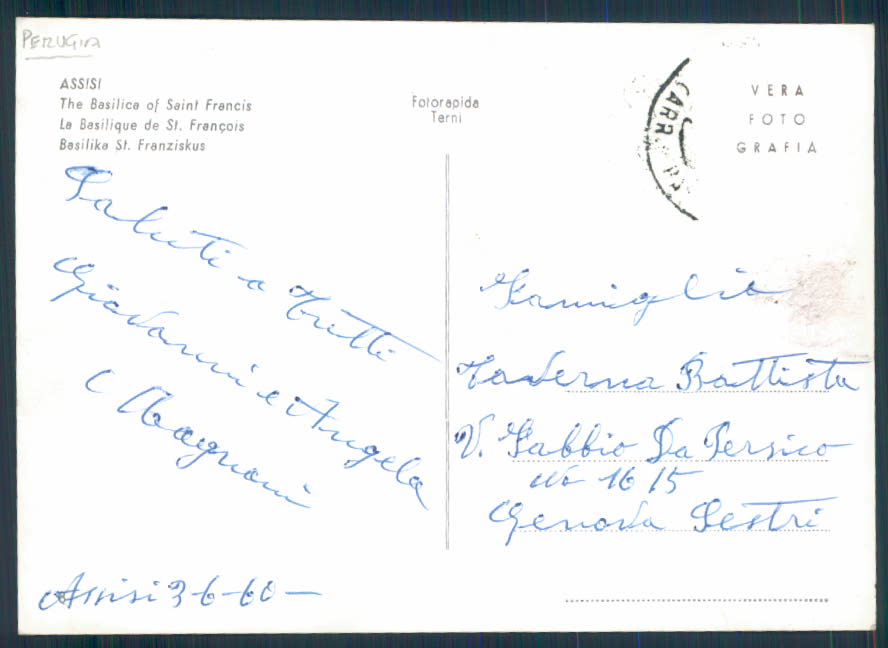 PERUGIA
ASSISI
The Basilica of Saint Francis
La Basilique de St. François
Basilika St. Franziskus
Fotorapida
Terni
VERA
FOTO
GRAFIA
Saluti a tutti
Giovanni e Angela
Assisi 3-6-60 —
Famiglia
Taverna Battista
V. Fabbio Da Persico
No 16/5
Genova Sestri